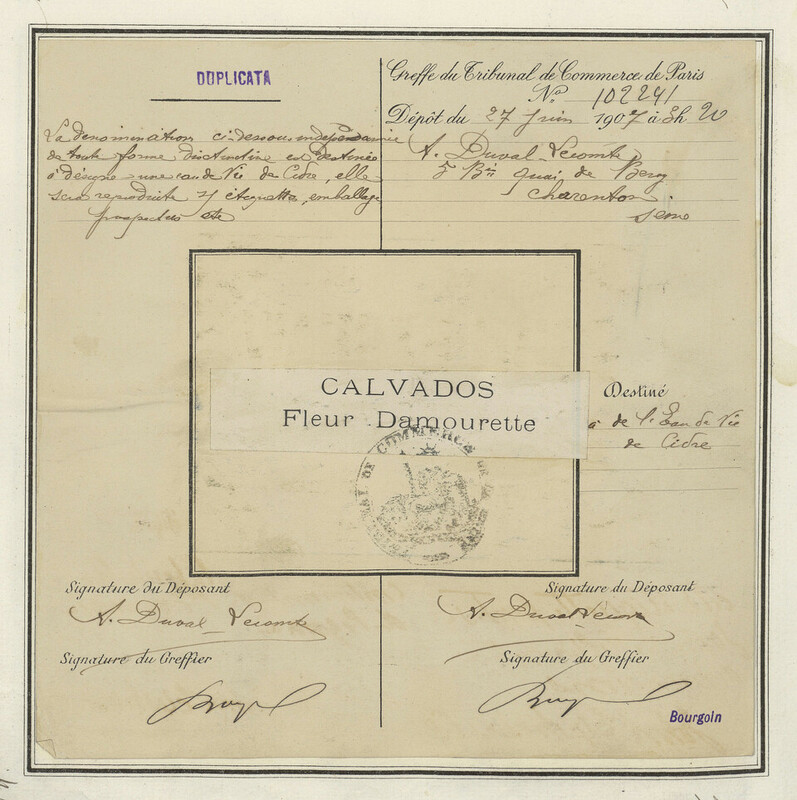 DUPLICATA
La dénomination ci-dessous indépendante
de toute forme distinctive est destinée
à désigner une eau de Vie de Cidre, elle
sera reproduite s/ étiquettes, emballages
prospectus etc
Greffe du Tribunal de Commerce de Paris
No. 102241
Dépôt du 27 Juin 1907 à 3h 20
A. Duval-Lecomte
5 Bis quai de Bercy
Charenton
Seine
CALVADOS
Fleur Damourette
TRIBUNAL DE COMMERCE DE
Destiné
à de l'Eau de Vie
de Cidre
Signature du Déposant
A. Duval-Lecomte
Signature du Greffier
Signature du Déposant
A. Duval Lecomte
Signature du Greffier
Bourgoin